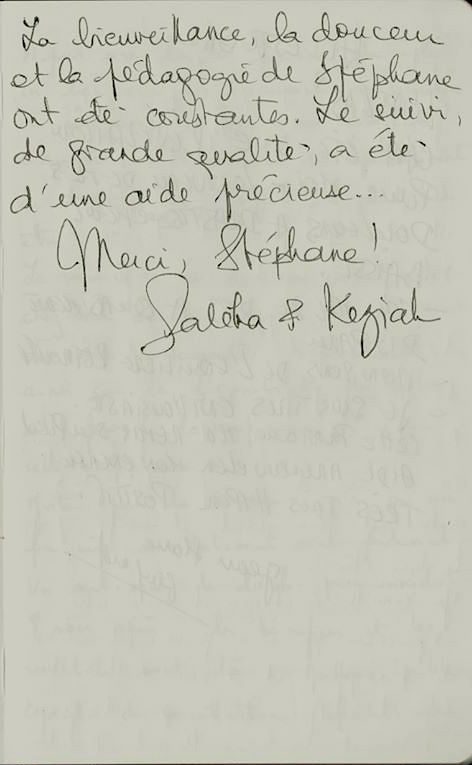 La bienveillance, la douceur
et la pédagogie de Stéphane
ont été constantes. Le suivi,
de grande qualité, a été
d'une aide précieuse...
Merci, Stéphane !
& Keziah